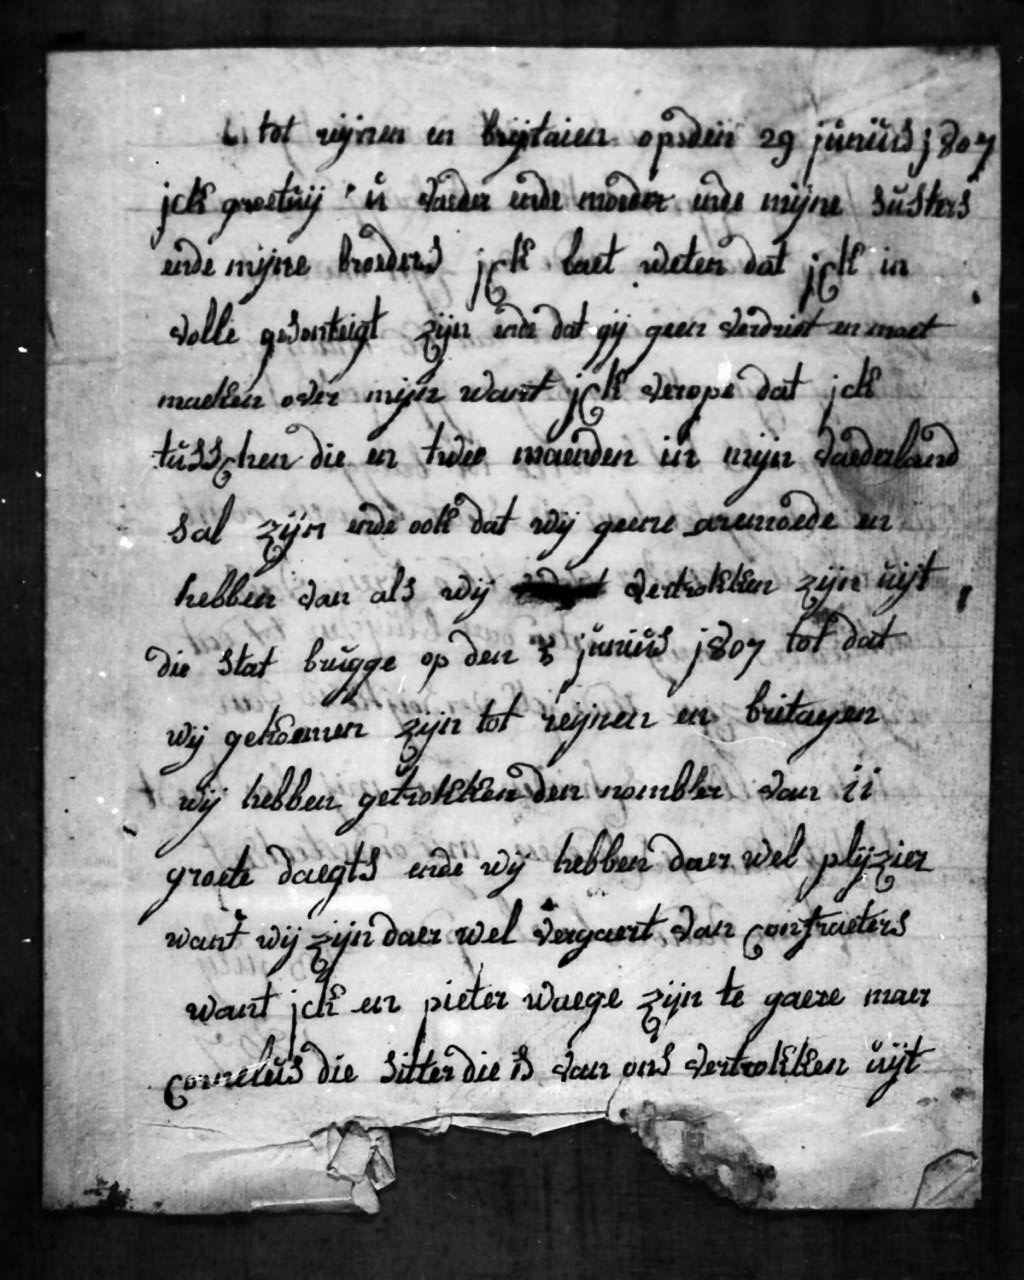 tot reijnen en breijtaien opsden 29 juniusj807
jck groetuij u vaeder ende moeder ende mijne susters
ende mijne broeders jck laet weten dat jck in
volle gesonteigt zijn ende dat gij geen verdriet en moet
maeken over mijn want jck verope dat jck
tusschen die en twee maenden in mijn vaederland
sal zijn ende ook dat wij geene aremoede en
hebben van als wij vertrokken zijn uijt
die stat brugge op den 5 junius j807 tot dat
wij gekoemen zijn tot reijnen en britayen
wij hebben getrokken den nombler van ii
groete daegts ende wij hebben daer wel plijzier
want wij zijn daer wel vergaert van confraeters
want jck en pieter waege zijn te gaere maer
cornelus die sitter die is van ons vertrokken uijt